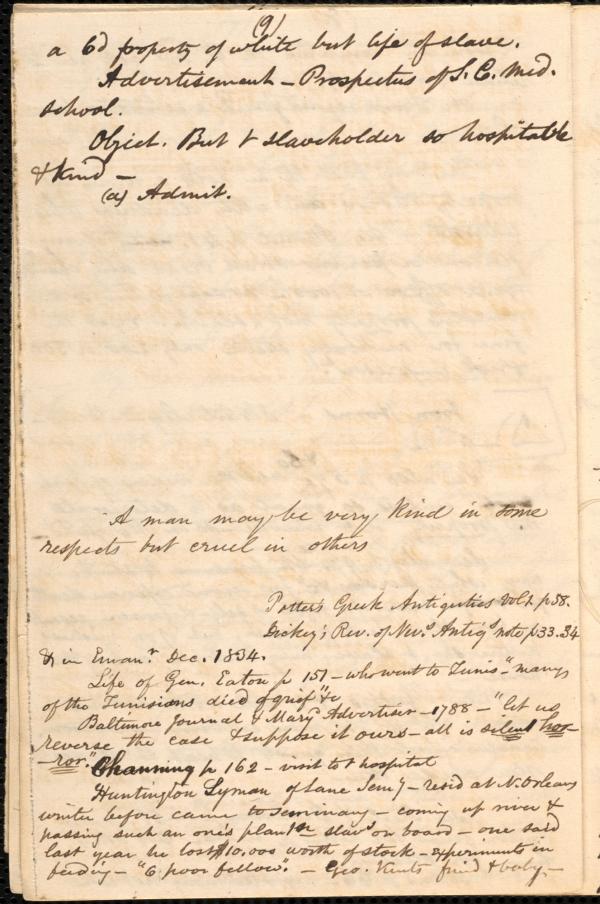 (9)
a 6d property of white but life of slave.
Advertisement – Prospectus of S. C. Med.
school.
Object. But t slaveholder so hospitable
& kind –
(a) Admit.
A man may be very kind in some
respects but cruel in others
Potter's Greek Antiquities Vol 1. p 58.
Dickey's Rev. of Nev.s Antiq.s note p 33. 34
& in Eman.r Dec. 1834.
Life of Gen. Eaton p 151 – who went to Tunis – "many
of the Tunisians died of grief" &c
Baltimore Journal & Mary.d Advertiser – 1788 – "let us
reverse the case & suppose it ours – all is silent hor-
-ror."
Channing p 162 – visit to t hospital
Huntington Lyman of Lane Sem.y – resid at N. Orleans
winter before came to Seminary – coming up river &
passing such an one's plan slavs on board – one said
last year he lost $10,000 worth of stock – experiments in
feeding – "O poor fellow". – Geo. Kents frind & baby –